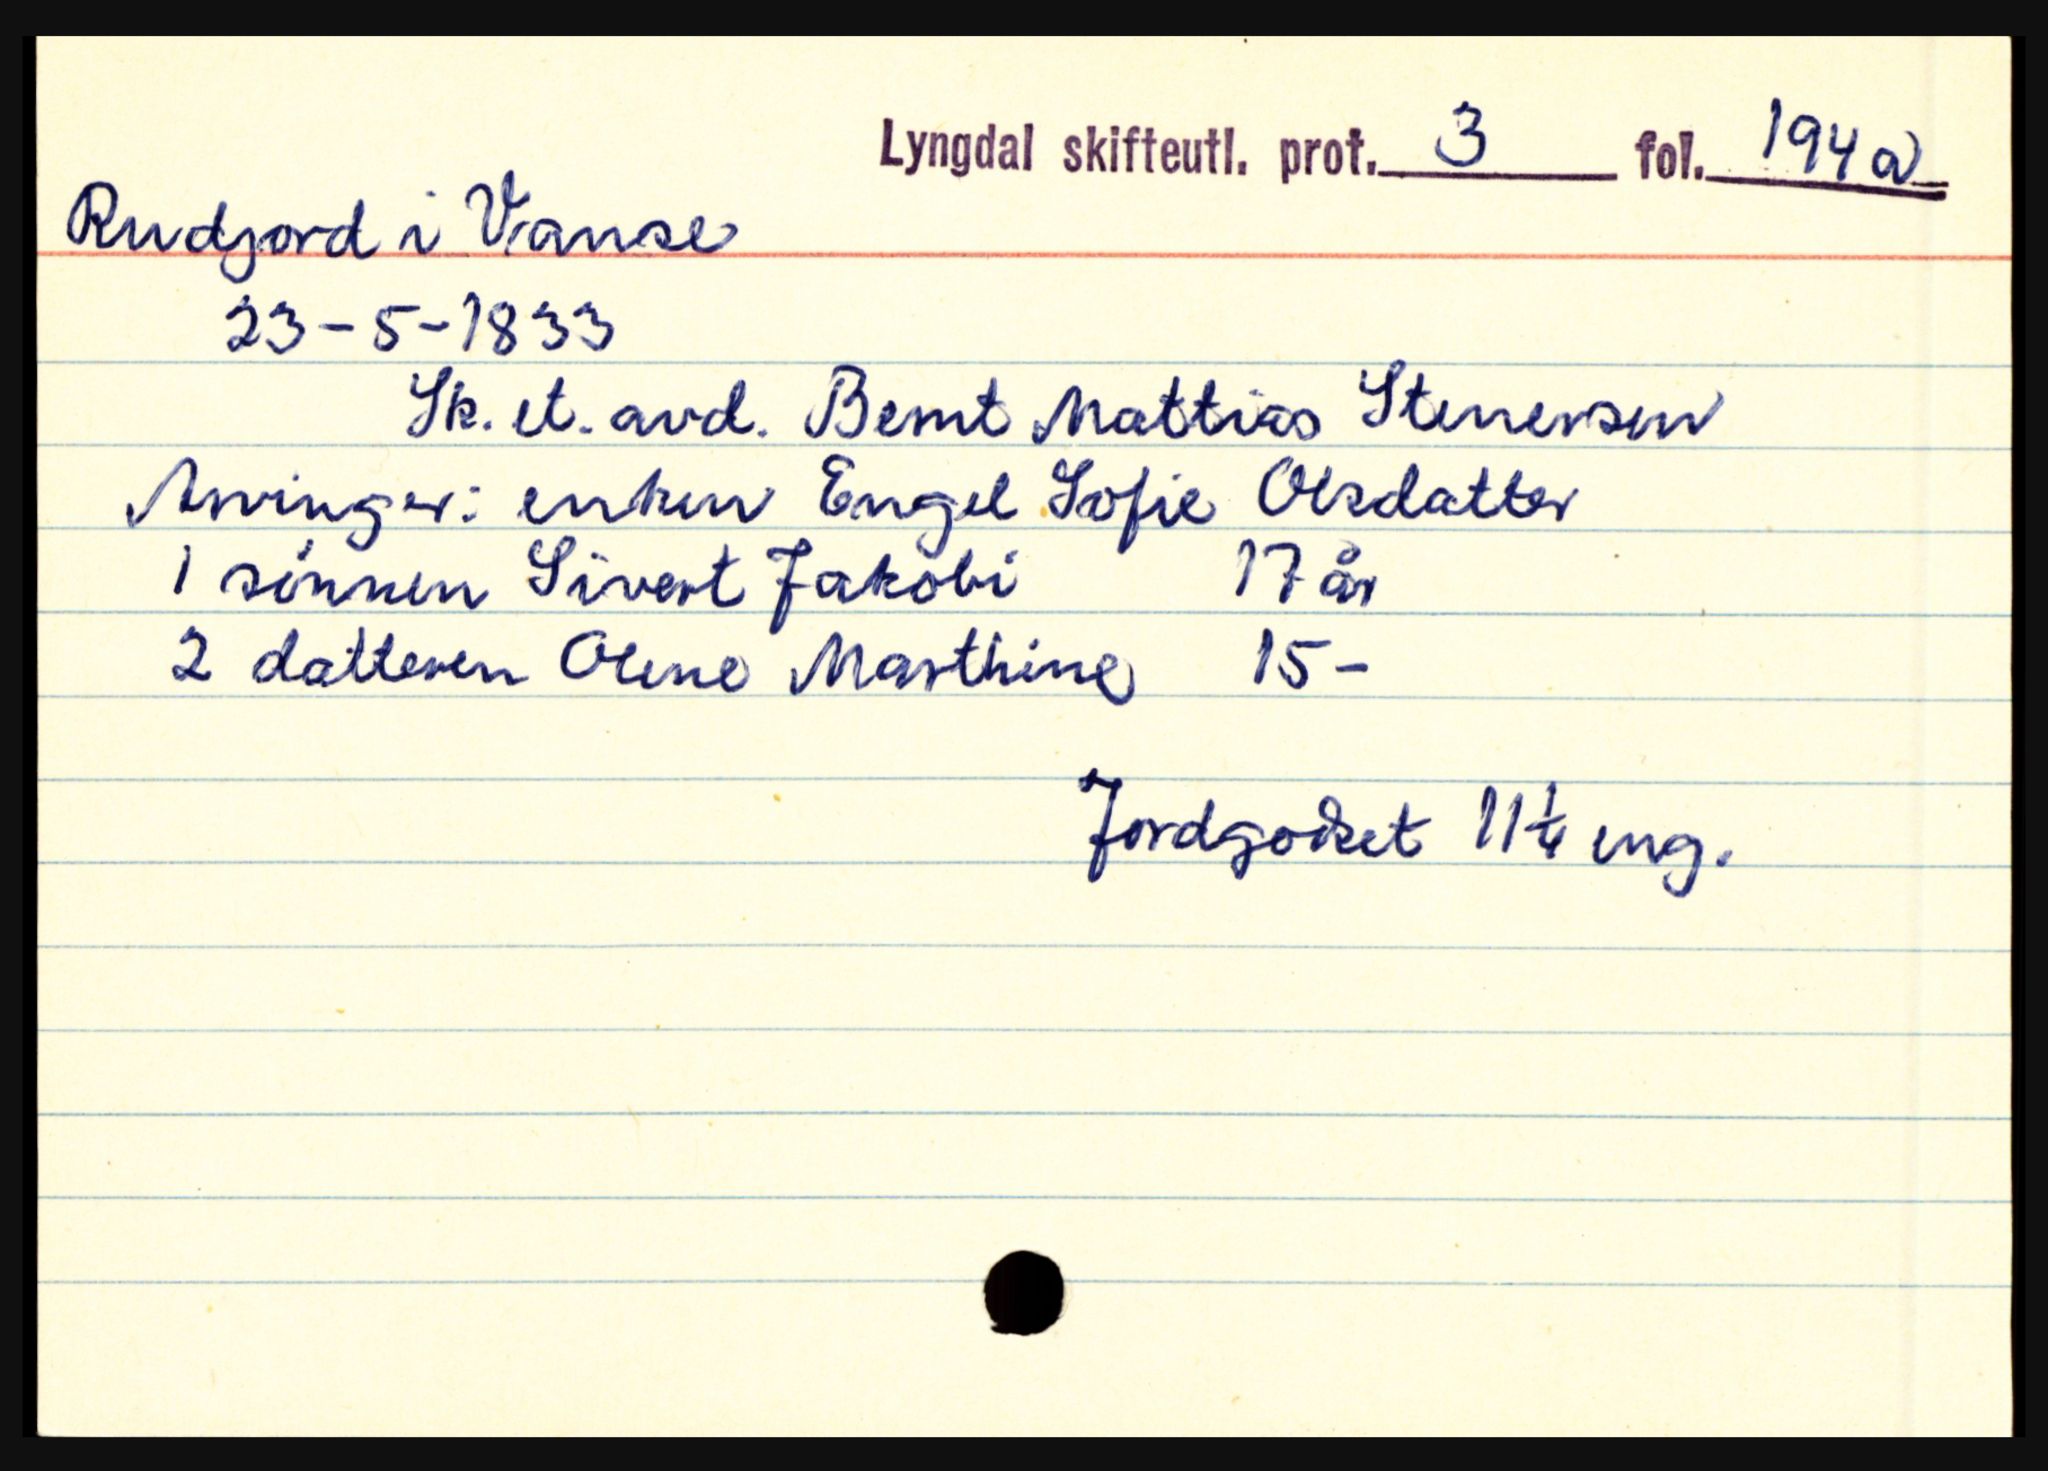 Lyngdal skifteutl. prot. 3 fol. 194a
Rudjord i Vanse
23-5-1833
Sk. et. avd. Bernt Mattias Stenersen
Arvinger: enken Engel Sofie Olsdatter
1 sønnen Sivert Jakobi 17 år
2 datteren Olene Marthine 15-
Jordgodset 11 1/4 eng.